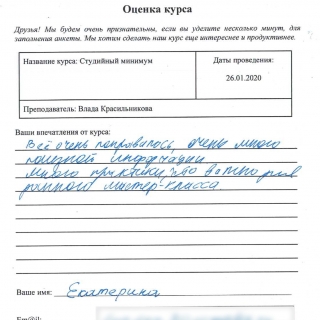 Оценка курса
Друзья! Мы будем очень признательны, если вы уделите несколько минут, для
заполнения анкеты. Мы хотим сделать наш курс еще интереснее и продуктивнее.
Название курса: Студийный минимум
Даты проведения:
26.01.2020
Преподаватель: Влада Красильникова
Ваши впечатления от курса:
Всё очень понравилось, очень много
полезной информации
много практики, это важно для
данного мастер-класса
Ваше имя: Екатерина
Em@il: